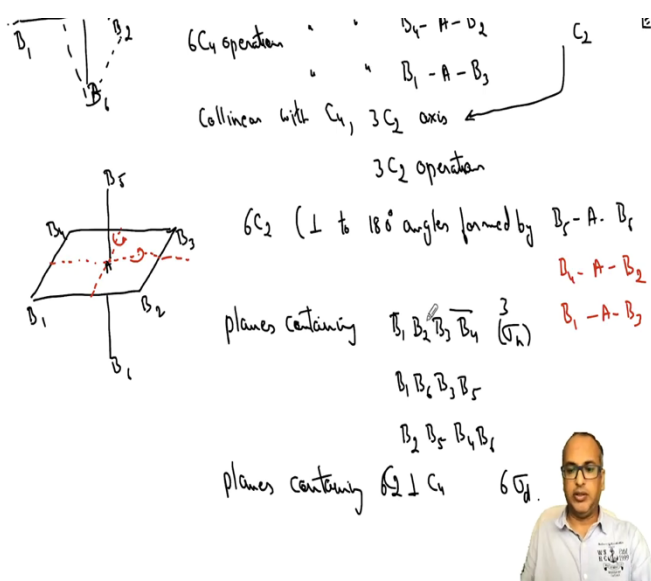 B1 B2
B6
6C4 operation " " B4 - A - B2
" " B1 - A - B3
C2
Collinear with C4, 3C2 axis
3C2 operation
B5
B4 B3
A
B1 B2
B6
6C2 (⊥ to 180° angles formed by B5 - A - B6
B4 - A - B2
B1 - A - B3
planes containing B1 B2 B3 B4 3 (σh)
B1 B6 B3 B5
B2 B5 B4 B6
planes containing 6C2 ⊥ C4 6σd.